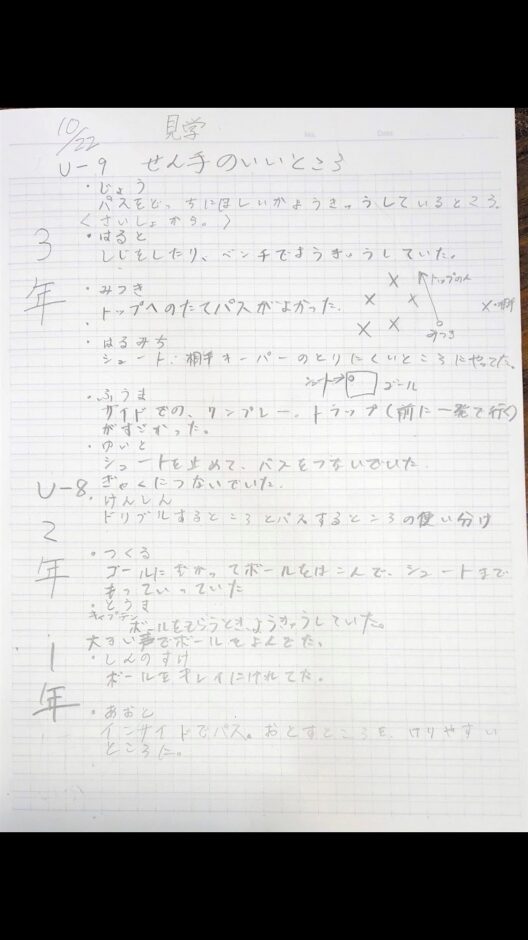 10/22 見学
No. Date
U-9 せん手のいいところ
3年
・じょう
パスをどっちにほしいかようきゅうしているところ
〈さいしょから。〉
・はると
しじをしたり、ベンチでようきゅうしていた。
・みつき
トップへのたてパスがよかった.
トップの人
みつき
×・相手
・はるみち
シュート.相手キーパーのとりにくいところにやってた。
シュート→ ゴール
・ふうま
サイドでの、ワンプレー。トラップ(前に一発で行く)
がすごかった。
・ゆいと
シュートを止めて、パスをつないでいた.
ぎゃくにつないでいた.
U-8
2年
・けんしん
ドリブルするところとパスするところの使い分け
・つくる
ゴールにむかってボールをはこんで、シュートまで
もっていっていた
・とうま
キャプテン
ボールをもらうとき、ようきゅうしていた。
大きい声でボールをよんでた。
1年
・しんのすけ
ボールをキレイにけれてた。
・あおと
インサイドでパス。おとすところを、けりやすい
ところに。